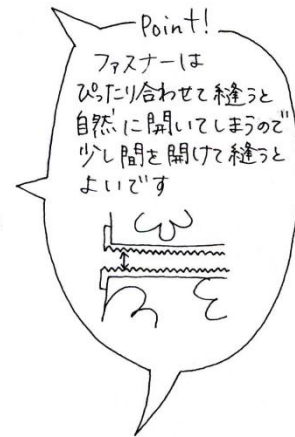 Point!
ファスナーは
ぴったり合わせて縫うと
自然に開いてしまうので
少し間を開けて縫うと
よいです